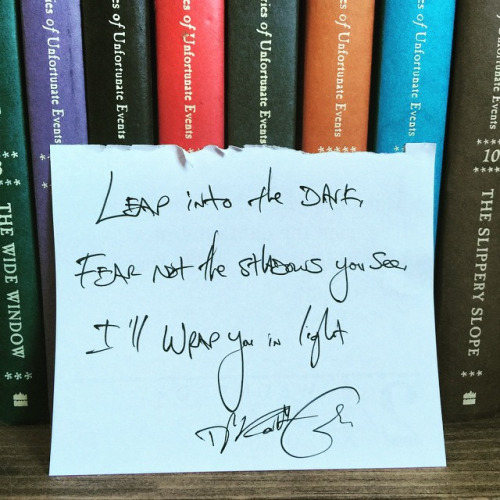 ries of Unfortunate Events
es of Unfortunate Events
es of Unfortunate Events
ies of Unfortunate Events
ries of Unfortunate Events
ies of Unfortunate Events
es of Unfortunate Events
THE WIDE WINDOW
10
THE SLIPPERY SLOPE
LEAP into the DARK,
FEAR not the SHADOWS you see,
I'll WRAP you in light